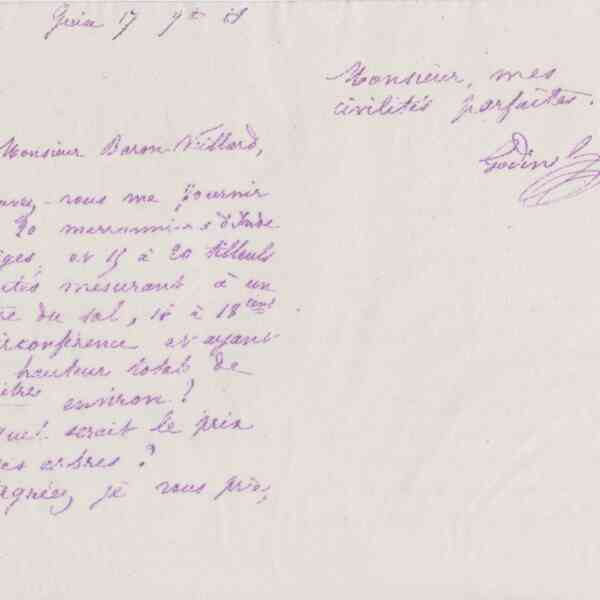 Guise 17 9bre 18
Monsieur Baron-Veillard,
-vous me fournir
20 marronniers d'Inde
et 15 à 20 tilleuls
mesurant à un
du sol, 15 à 18 cent
circonférence et ayant
hauteur total de
environ ?
quel serait le prix
ces arbres ?
agréez, je vous prie,
Monsieur, mes
civilités parfaites.
Godin